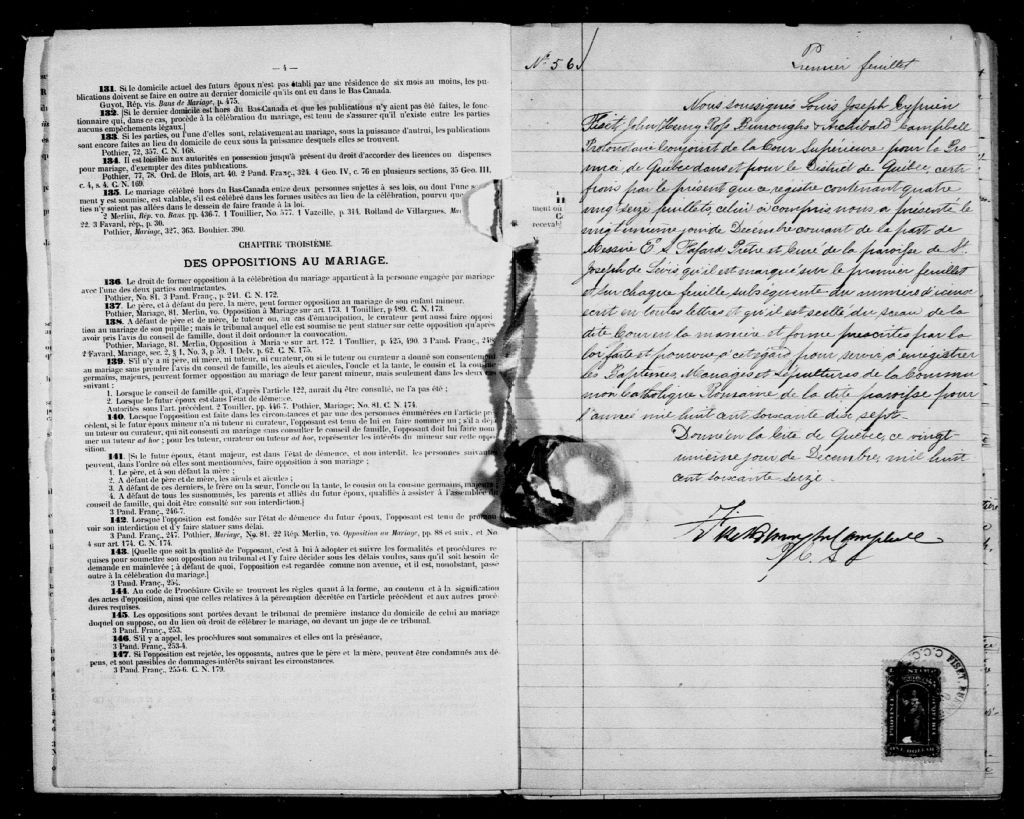 — 4 —
131. Si le domicile actuel des futurs époux n'est pas établi par une résidence de six mois au moins, les pu-
blications doivent se faire en outre au dernier domicile qu'ils ont eu dans le Bas-Canada.
Guyot, Rép. vis. Bans de Mariage, p. 475.
132. [Si le dernier domicile est hors du Bas-Canada et que les publications n'y aient pas été faites, le fonc-
tionnaire qui, dans ce cas, procède à la célébration du mariage, est tenu de s'assurer qu'il n'existe entre les parties
aucuns empêchements légaux.]
133. Si les parties, ou l'une d'elles sont, relativement au mariage, sous la puissance d'autrui, les publications
sont encore faites au lieu du domicile de ceux sous la puissance desquels elles se trouvent.
Pothier, 72, 357. C. N. 168.
134. Il est loisible aux autorités en possession jusqu'à présent du droit d'accorder des licences ou dispenses
pour mariage, d'exempter des dites publications.
Pothier, 77, 78. Ord. de Blois, art. 40. 2 Pand. Franç., 324. 4 Geo. IV, c. 76 en plusieurs sections, 35 Geo. III,
c. 4, s. 4. C. N. 169.
135. Le mariage célébré hors du Bas-Canada entre deux personnes sujettes à ses lois, ou dont l'une s
ment y est soumise, est valable, s'il est célébré dans les formes usitées au lieu de la célébration, pourvu que
ties n'y soient pas allées dans le dessein de faire fraude à la loi.
2 Merlin, Rép. vo. Bans. pp. 436-7. 1 Touillier, No. 577. 1 Vazeille, p. 314. Rolland de Villargues,
22. 3 Favard, rép., p. 30.
Pothier, Mariage, 327, 363. Bouhier. 390.
CHAPITRE TROISIÈME.
DES OPPOSITIONS AU MARIAGE.
136. Le droit de former opposition à la célébration du mariage appartient à la personne engagée par mariage
avec l'une des deux parties contractantes.
Pothier, No. 81. 3 Pand. Franç., p. 241. C. N. 172.
137. Le père, et à défaut du père, la mère, peut former opposition au mariage de son enfant mineur.
Pothier, Mariage, 81. Merlin, vo. Opposition à Mariage sur art. 173. 1 Touillier, p 489. C. N. 173.
138. A défaut de père et de mère, le tuteur ou, au cas d'émancipation, le curateur peut aussi faire opposi-
tion au mariage de son pupille; mais le tribunal auquel elle est soumise ne peut statuer sur cette opposition qu'après
avoir pris l'avis du conseil de famille, dont il doit ordonner la convocation.
Pothier, Mariage, 81. Merlin, Opposition à Mariage sur art. 172. 1 Toullier, p. 425, 490. 3 Pand. Franç.,
2 Favard, Mariage, sec. 2, § 1, No. 3, p 59. 1 Delv. p. 62. C. N. 175.
139. S'il n'y a ni père, ni mère, ni tuteur, ni curateur, ou si le tuteur ou curateur a donné son consentement
au mariage sans prendre l'avis du conseil de famille, les aïeuls et aïeules, l'oncle et la tante, le cousin et la cousine
germains, majeurs, peuvent former opposition au mariage de leur parent mineur, mais seulement dans les deux
suivant :
1. Lorsque le conseil de famille qui, d'après l'article 122, aurait du être consulté, ne l'a pas été ;
2. Lorsque le futur époux est dans l'état de démence.
Autorités sous l'art. précédent. 2 Touiller, pp. 446-7. Pothier, Mariage; No. 81. C. N. 174.
140. Lorsque l'opposition est faite dans les circonstances et par une des personnes énumérées en l'article pré-
cédent, si le futur époux mineur n'a ni tuteur ni curateur, l'opposant est tenu de lui en faire nommer un ; s'il a déjà
un tuteur ou curateur, qui ait consenti au mariage sans consulter le conseil de famille, l'opposant doit lui faire nom-
mer un tuteur ad hoc ; pour les tuteur, curateur ou tuteur ad hoc, représenter les intérêts du mineur sur cette oppo-
sition.
141. [Si le futur époux, étant majeur, est dans l'état de démence, et non interdit, les personnes suivantes
peuvent, dans l'ordre où elles sont mentionnées, faire opposition à son mariage ;
1. Le père, et à son défaut la mère ;
2. A défaut de père et de mère, les aïeuls et aïeules ;
3. A défaut de ces derniers, le frère ou la sœur, l'oncle ou la tante, le cousin ou la cousine germains, majeurs
4. A défaut de tous les susnommés, les parents et alliés du futur époux, qualifiés à assister à l'assemblée du
conseil de famille, qui doit être consulté sur son interdiction.]
3 Pand. Franç., 246-7.
142. Lorsque l'opposition est fondée sur l'état de démence du futur époux, l'opposant est tenu de promou-
voir son interdiction et d'y faire statuer sans délai.
3 Pand. Franç., 247. Pothier, Mariage, No. 81. 22 Rép. Merlin, vo. Opposition au Mariage, pp. 88 et suiv., et No.
4 sur art. 174. C. N. 174.
143. [Quelle que soit la qualité de l'opposant, c'est à lui à adopter et suivre les formalités et procédures re-
quises pour soumettre son opposition au tribunal et l'y faire décider sous les délais voulus, sans qu'il soit besoin de
demande en mainlevée ; à défaut de quoi, l'opposition est regardée comme non avenue, et il est, nonobstant, passé
outre à la célébration du mariage.]
3 Pand. Franç., 254.
144. Au code de Procédure Civile se trouvent les règles quant à la forme, au contenu et à la signification
des actes d'opposition, ainsi que celles relatives à la péremption décrétée en l'article précédent et aux autres procé-
dures requises.
145. Les oppositions sont portées devant le tribunal de première instance du domicile de celui au mariage
duquel on suppose, ou du lieu où droit de célébrer le mariage, ou devant un juge de ce tribunal.
3 Pand. Franç., 253.
146. S'il y a appel, les procédures sont sommaires et elles ont la préséance,
3 Pand. Franç., 253-4.
147. Si l'opposition est rejetée, les opposants, autres que le père et la mère, peuvent être condamnés aux dé-
pens, et sont passibles de dommages-intérêts suivant les circonstances.
3 Pand. Franç., 255-6. C. N. 179.
No 56
Premier feuillet
Nous soussignés Louis Joseph Cyprien
Fiset, John Henry Ross Burroughs & Archibald Campbell
Protonotaire Conjoint de la Cour Supérieure pour la Pro
vince de Québec dans et pour le District de Québec, certi
fions par le présent que ce registre contenant quatre
vingt seize feuillets, celui ci compris nous a présenté le
vingt unieme jour de Décembre courant de la part de
Messire E. S. Fafard Prêtre et Curé de la paroisse de St.
Joseph de Lévis qu'il est marqué sur le premier feuillet
et sur chaque feuille subséquente du numéro d'icenx
écrit en toutes lettres et qu'il est scellé du sceau de la
dite Cour en la manière et forme prescrites par la
loi faite et pourvue à cet égard pour servir à enregistrer
les Baptemes, Mariages et Sépultures de la Commu
nion Catholique Romaine de la dite paroisse pour
l'année mil huit cent soixante dix sept.
Donné en la Cité de Québec, ce vingt
unieme jour de Décembre, mil huit
cent soixante seize.
Fiset Burroughs Campbell
P. C. S
ONE DOLLAR